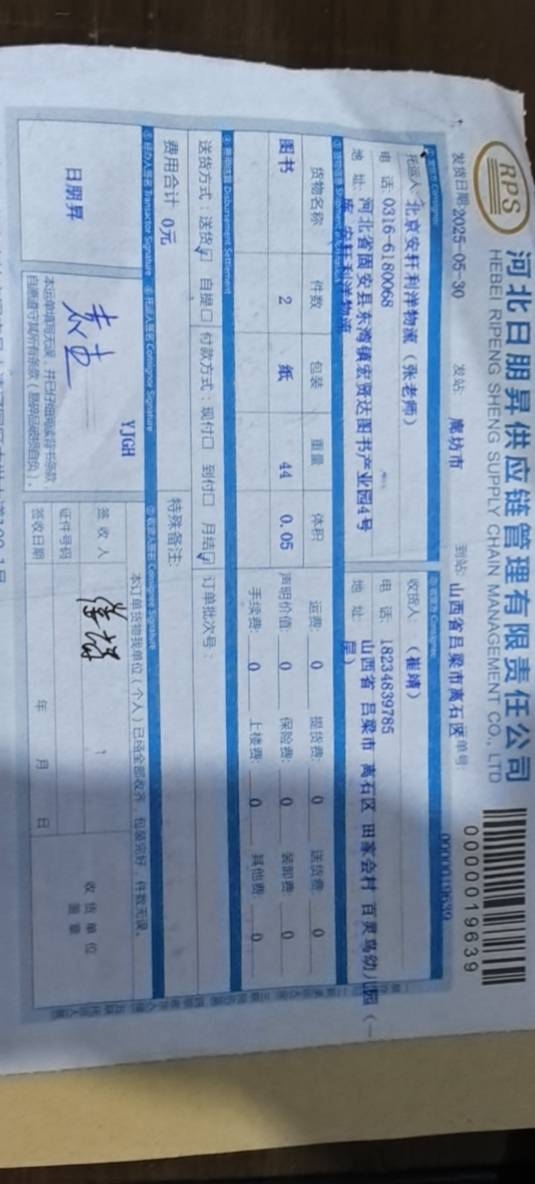 RPS
河北日朋昇供应链管理有限责任公司
HEBEI RIPENG SHENG SUPPLY CHAIN MANAGEMENT CO., LTD
0000019639
发货日期:2025-05-30 发站: 廊坊市 到站: 山西省吕梁市离石区 运单号: 0000019639
托运人: 北京安轩利洋物流（张老师）
电 话: 0316-6180068
地 址: 河北省固安县东湾镇宏贤达图书产业园4号
库 安轩利洋物流
收货人: （崔靖）
电 话: 18234839785
地 址: 山西省 吕梁市 离石区 田家会村 百灵鸟幼儿园（一
层）
货物名称 件数 包装 重量 体积
图书 2 纸 44 0.05
运费: 0 提货费: 0 送货费: 0
声明价值: 0 保险费: 0 装卸费: 0
手续费: 0 上楼费: 0 其他费: 0
Disbursement Settlement
送货方式: 送货☑ 自提口 付款方式: 现付口 到付口 月结☑ 订单批次号:
费用合计 0元 特殊备注:
①经办人签名 Transactor Signature ⑥托运人签名 Consignor Signature ⑦收货人签名 Consignee Signature
日朋昇
YJGH
本运单填写无误，并已仔细阅读背书条款
自愿遵守其所有条款（易碎品破损自负）。
本订单货物我单位（个人）已经全部收齐，包装完好，件数无误。
签收人
证件号码
签收日期 年 月 日
收货单位
盖章